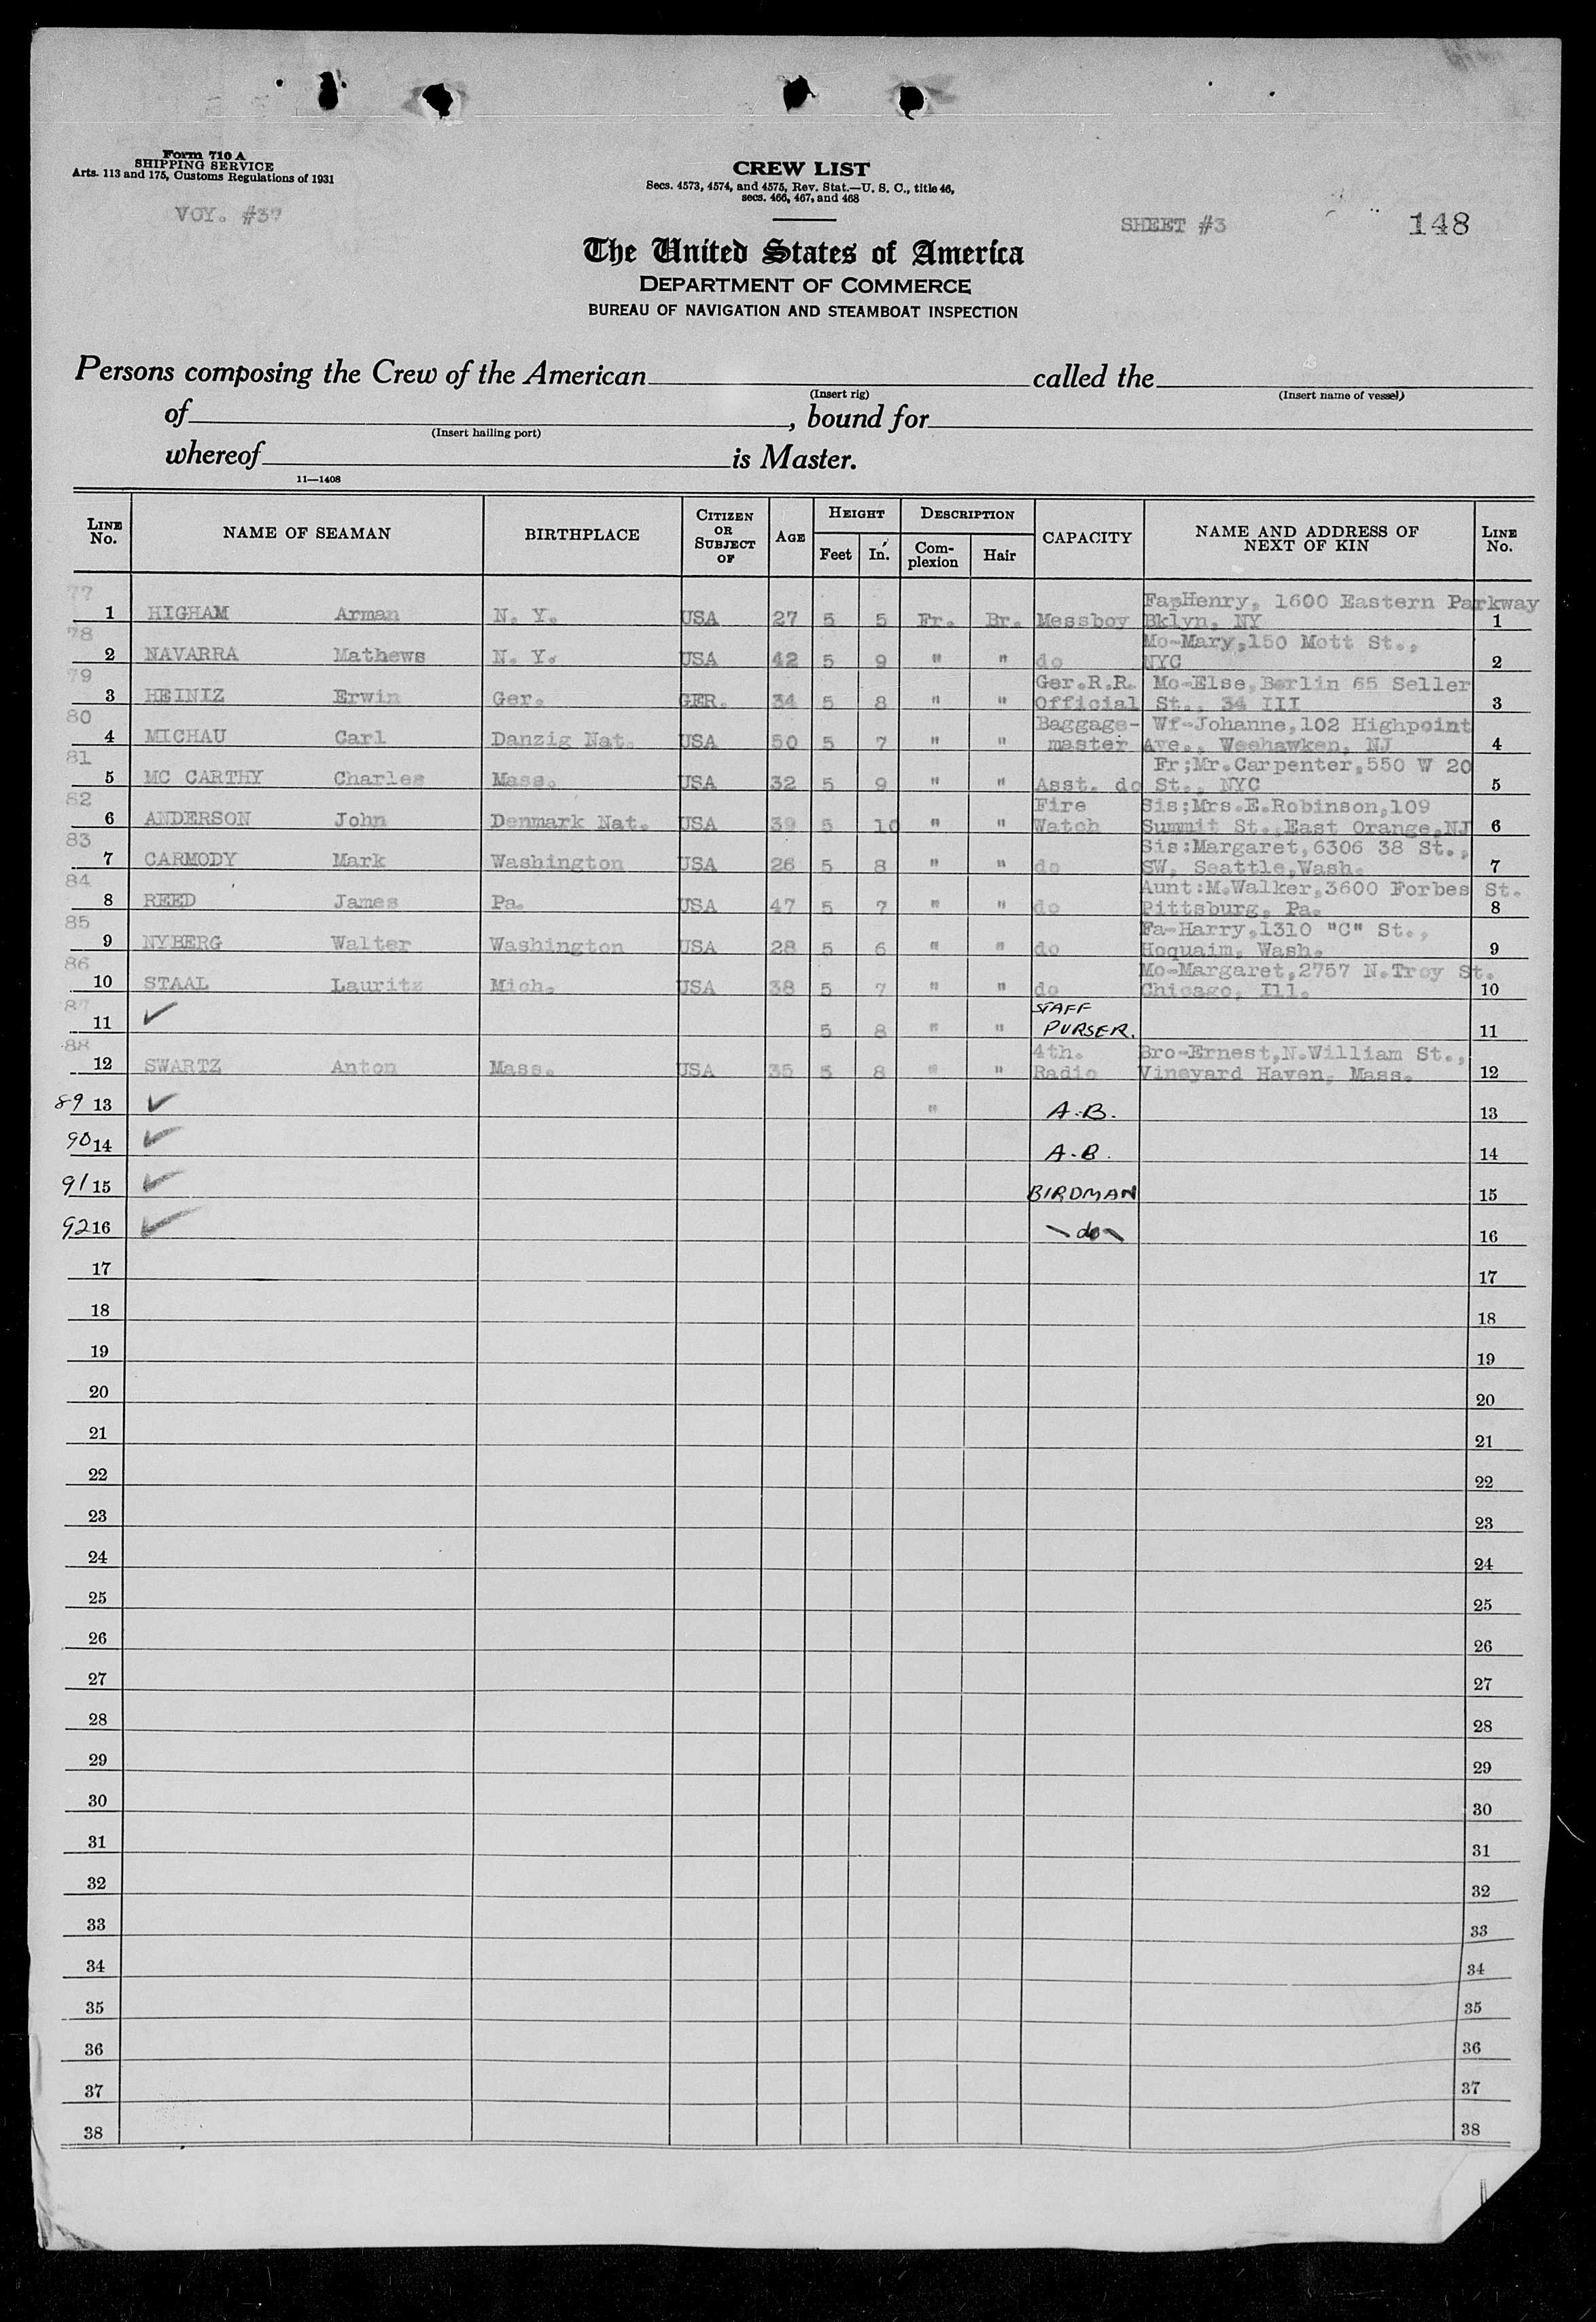 Form 710 A
SHIPPING SERVICE
Arts. 113 and 175, Customs Regulations of 1931
VOY. #37
CREW LIST
Secs. 4573, 4574, and 4575, Rev. Stat.—U. S. C., title 46,
secs. 466, 467, and 468
SHEET #3
148
The United States of America
DEPARTMENT OF COMMERCE
BUREAU OF NAVIGATION AND STEAMBOAT INSPECTION
Persons composing the Crew of the American called the
(Insert rig) (Insert name of vessel)
of , bound for
(Insert hailing port)
whereof is Master.
11—1408
LINE No. NAME OF SEAMAN BIRTHPLACE CITIZEN OR SUBJECT OF AGE HEIGHT Feet In. DESCRIPTION Complexion Hair CAPACITY NAME AND ADDRESS OF NEXT OF KIN LINE No.
77 Fa-Henry, 1600 Eastern Parkway
1 HIGHAM Arman N. Y. USA 27 5 5 Fr. Br. Messboy Bklyn, NY 1
78 Mo-Mary,150 Mott St.,
2 NAVARRA Mathews N. Y. USA 42 5 9 " " do NYC 2
79 Ger.R.R. Mo-Else,Berlin 65 Seller
3 HEINIZ Erwin Ger. GER. 34 5 8 " " Official St., 34 III 3
80 Baggage- Wf-Johanne,102 Highpoint
4 MICHAU Carl Danzig Nat. USA 50 5 7 " " master Ave., Weehawken, NJ 4
81 Fr;Mr.Carpenter,550 W 20
5 MC CARTHY Charles Mass. USA 32 5 9 " " Asst. do St., NYC 5
82 Fire Sis;Mrs.E.Robinson,109
6 ANDERSON John Denmark Nat. USA 39 5 10 " " Watch Summit St.,East Orange,NJ 6
83 Sis:Margaret,6306 38 St.,
7 CARMODY Mark Washington USA 26 5 8 " " do SW, Seattle,Wash. 7
84 Aunt:M.Walker,3600 Forbes St.
8 REED James Pa. USA 47 5 7 " " do Pittsburg, Pa. 8
85 Fa-Harry,1310 "C" St.,
9 NYBERG Walter Washington USA 28 5 6 " " do Hoquaim, Wash. 9
86 Mo-Margaret,2757 N.Troy St.
10 STAAL Lauritz Mich. USA 38 5 7 " " do Chicago, Ill. 10
87 STAFF
11 ✓ 5 8 " " PURSER. 11
88 4th. Bro-Ernest,N.William St.,
12 SWARTZ Anton Mass. USA 35 5 8 " " Radio Vineyard Haven, Mass. 12
89 13 ✓ " A.B. 13
90 14 ✓ A.B. 14
91 15 ✓ BIRDMAN 15
92 16 ✓ -do- 16
17 17
18 18
19 19
20 20
21 21
22 22
23 23
24 24
25 25
26 26
27 27
28 28
29 29
30 30
31 31
32 32
33 33
34 34
35 35
36 36
37 37
38 38